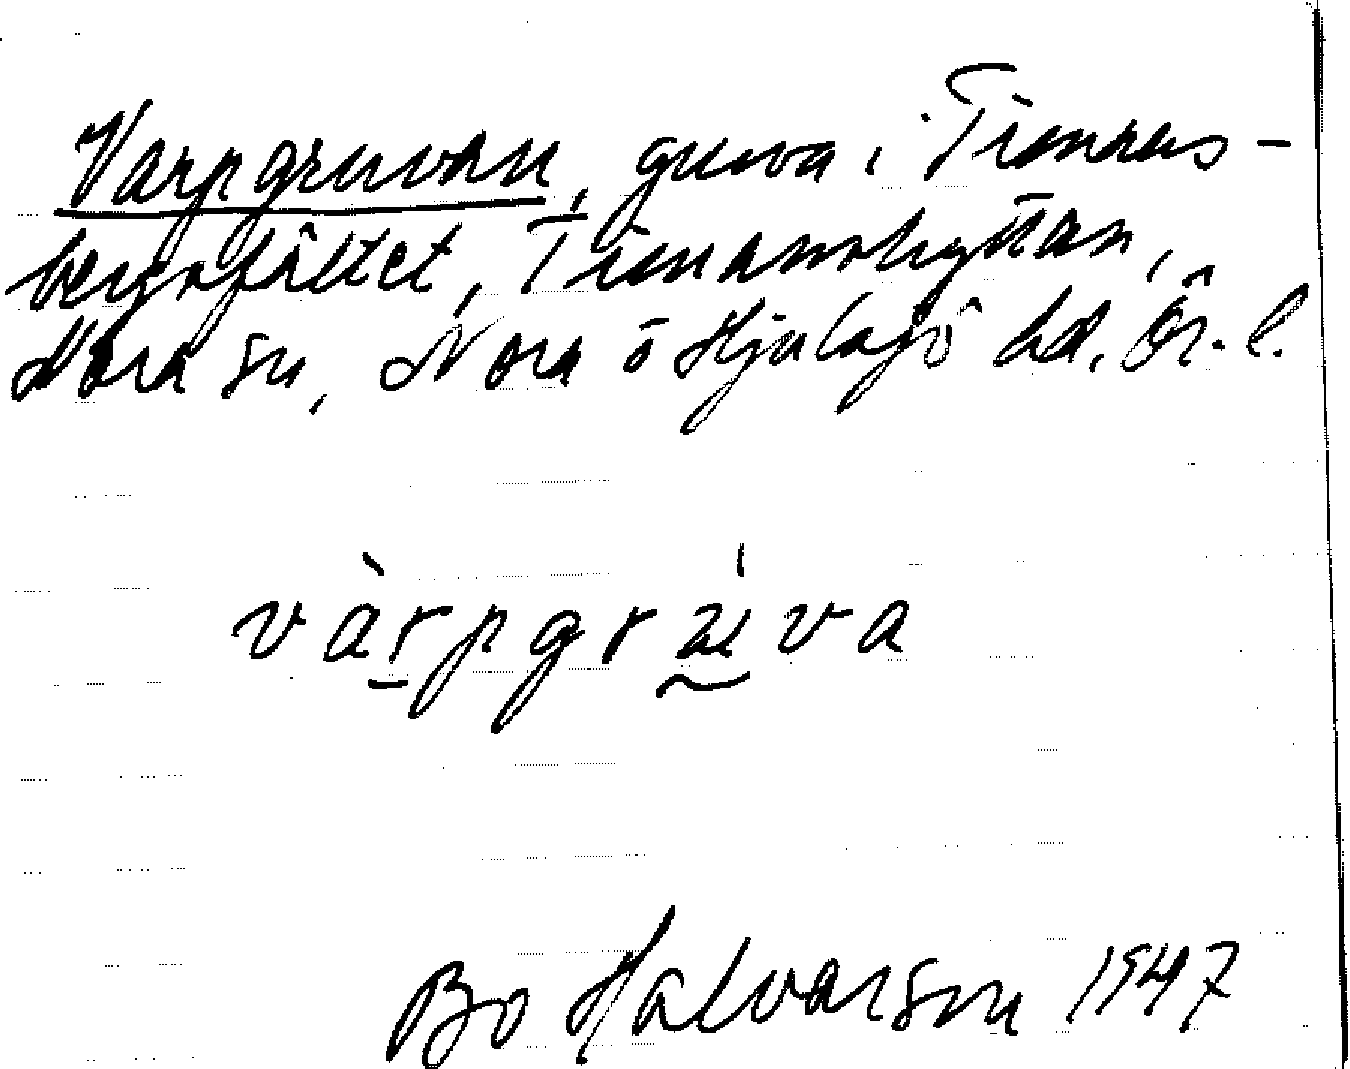 Varpgruvan, gruva i Timans-
bergsfältet, Timanshyttan,
Nora sn, Nora o Hjulsjö hd. Ör. l.
vàrpgrùva
Bo Halvarson 1947